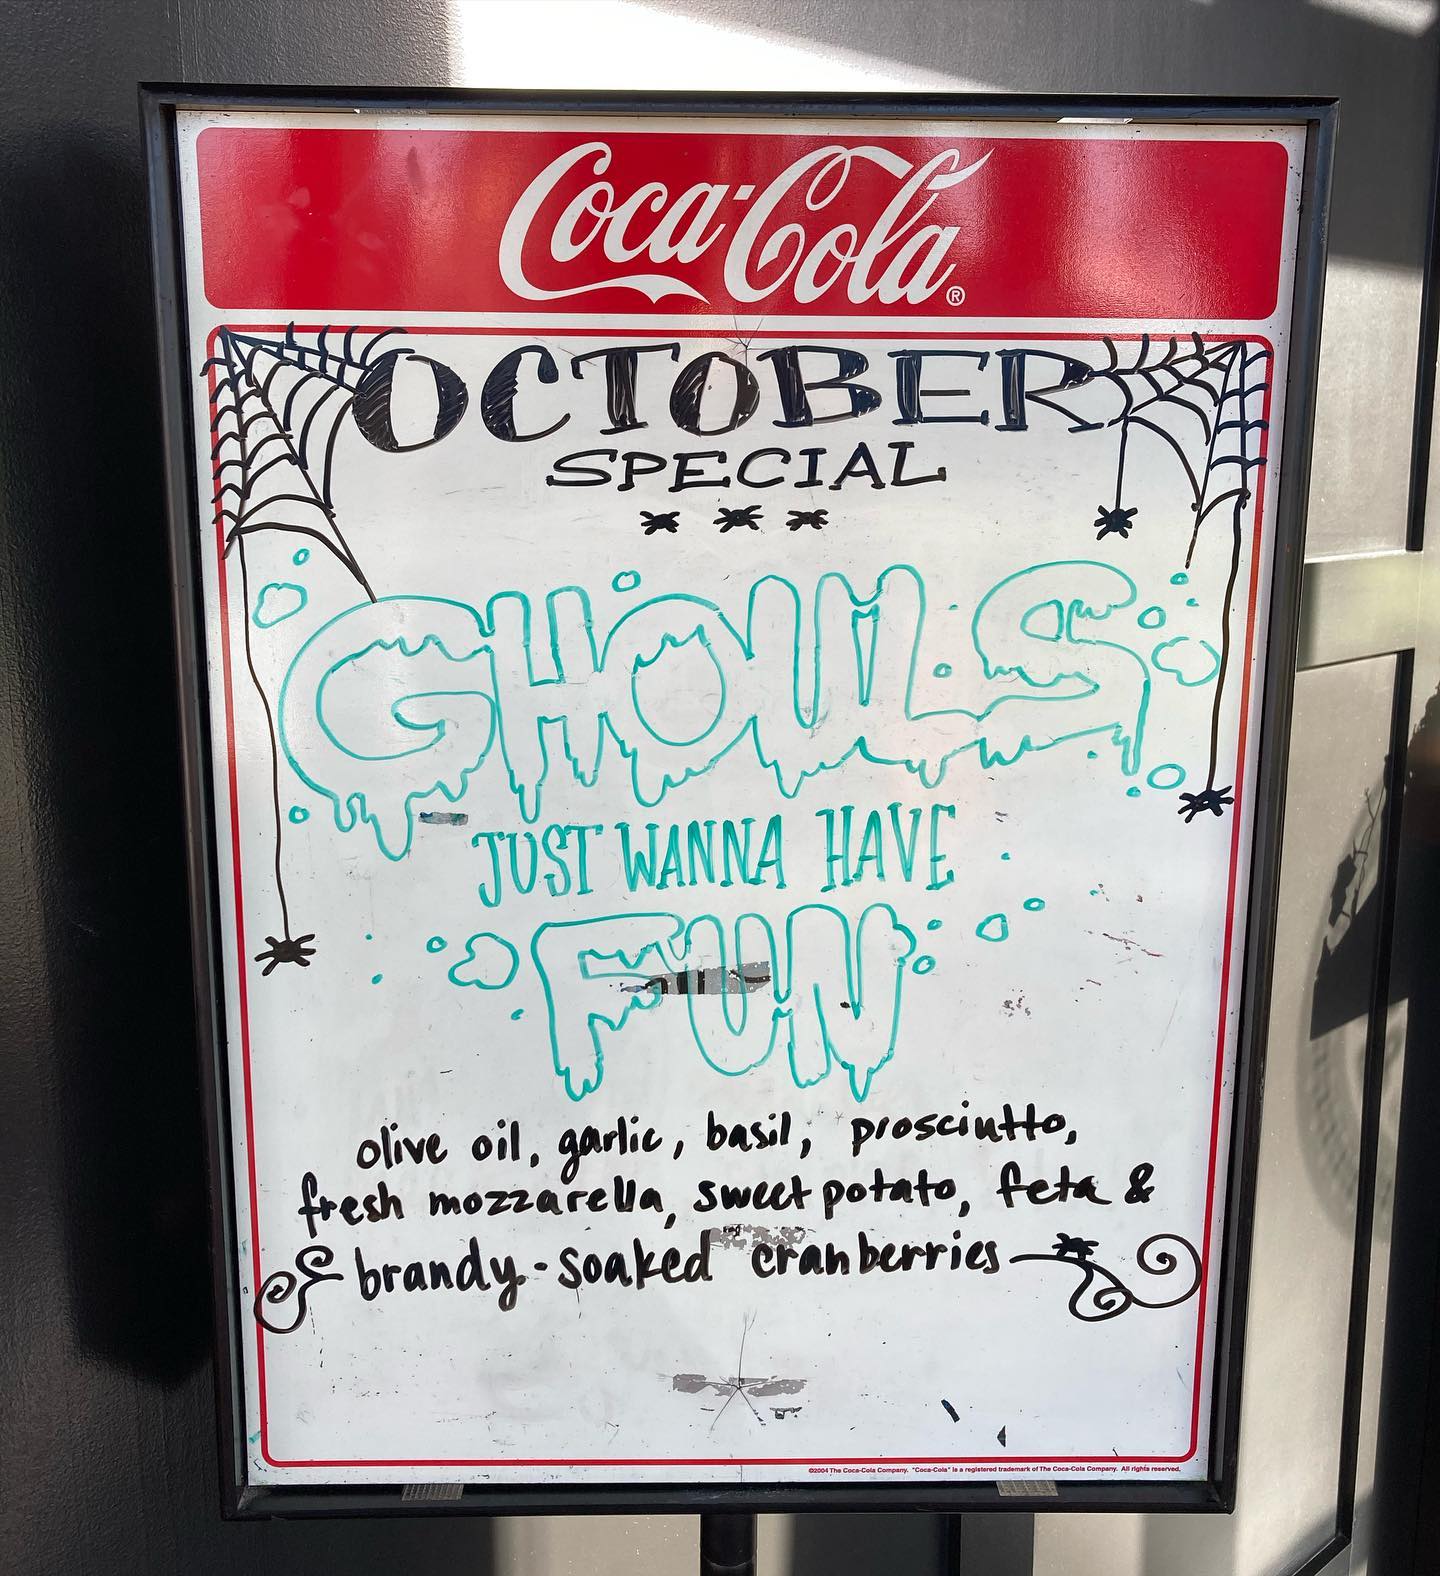 Coca-Cola®
OCTOBER
SPECIAL
GHOULS
JUST WANNA HAVE
FUN
olive oil, garlic, basil, prosciutto,
fresh mozzarella, sweet potato, feta &
brandy-soaked cranberries
©2004 The Coca-Cola Company. "Coca-Cola" is a registered trademark of The Coca-Cola Company. All rights reserved.